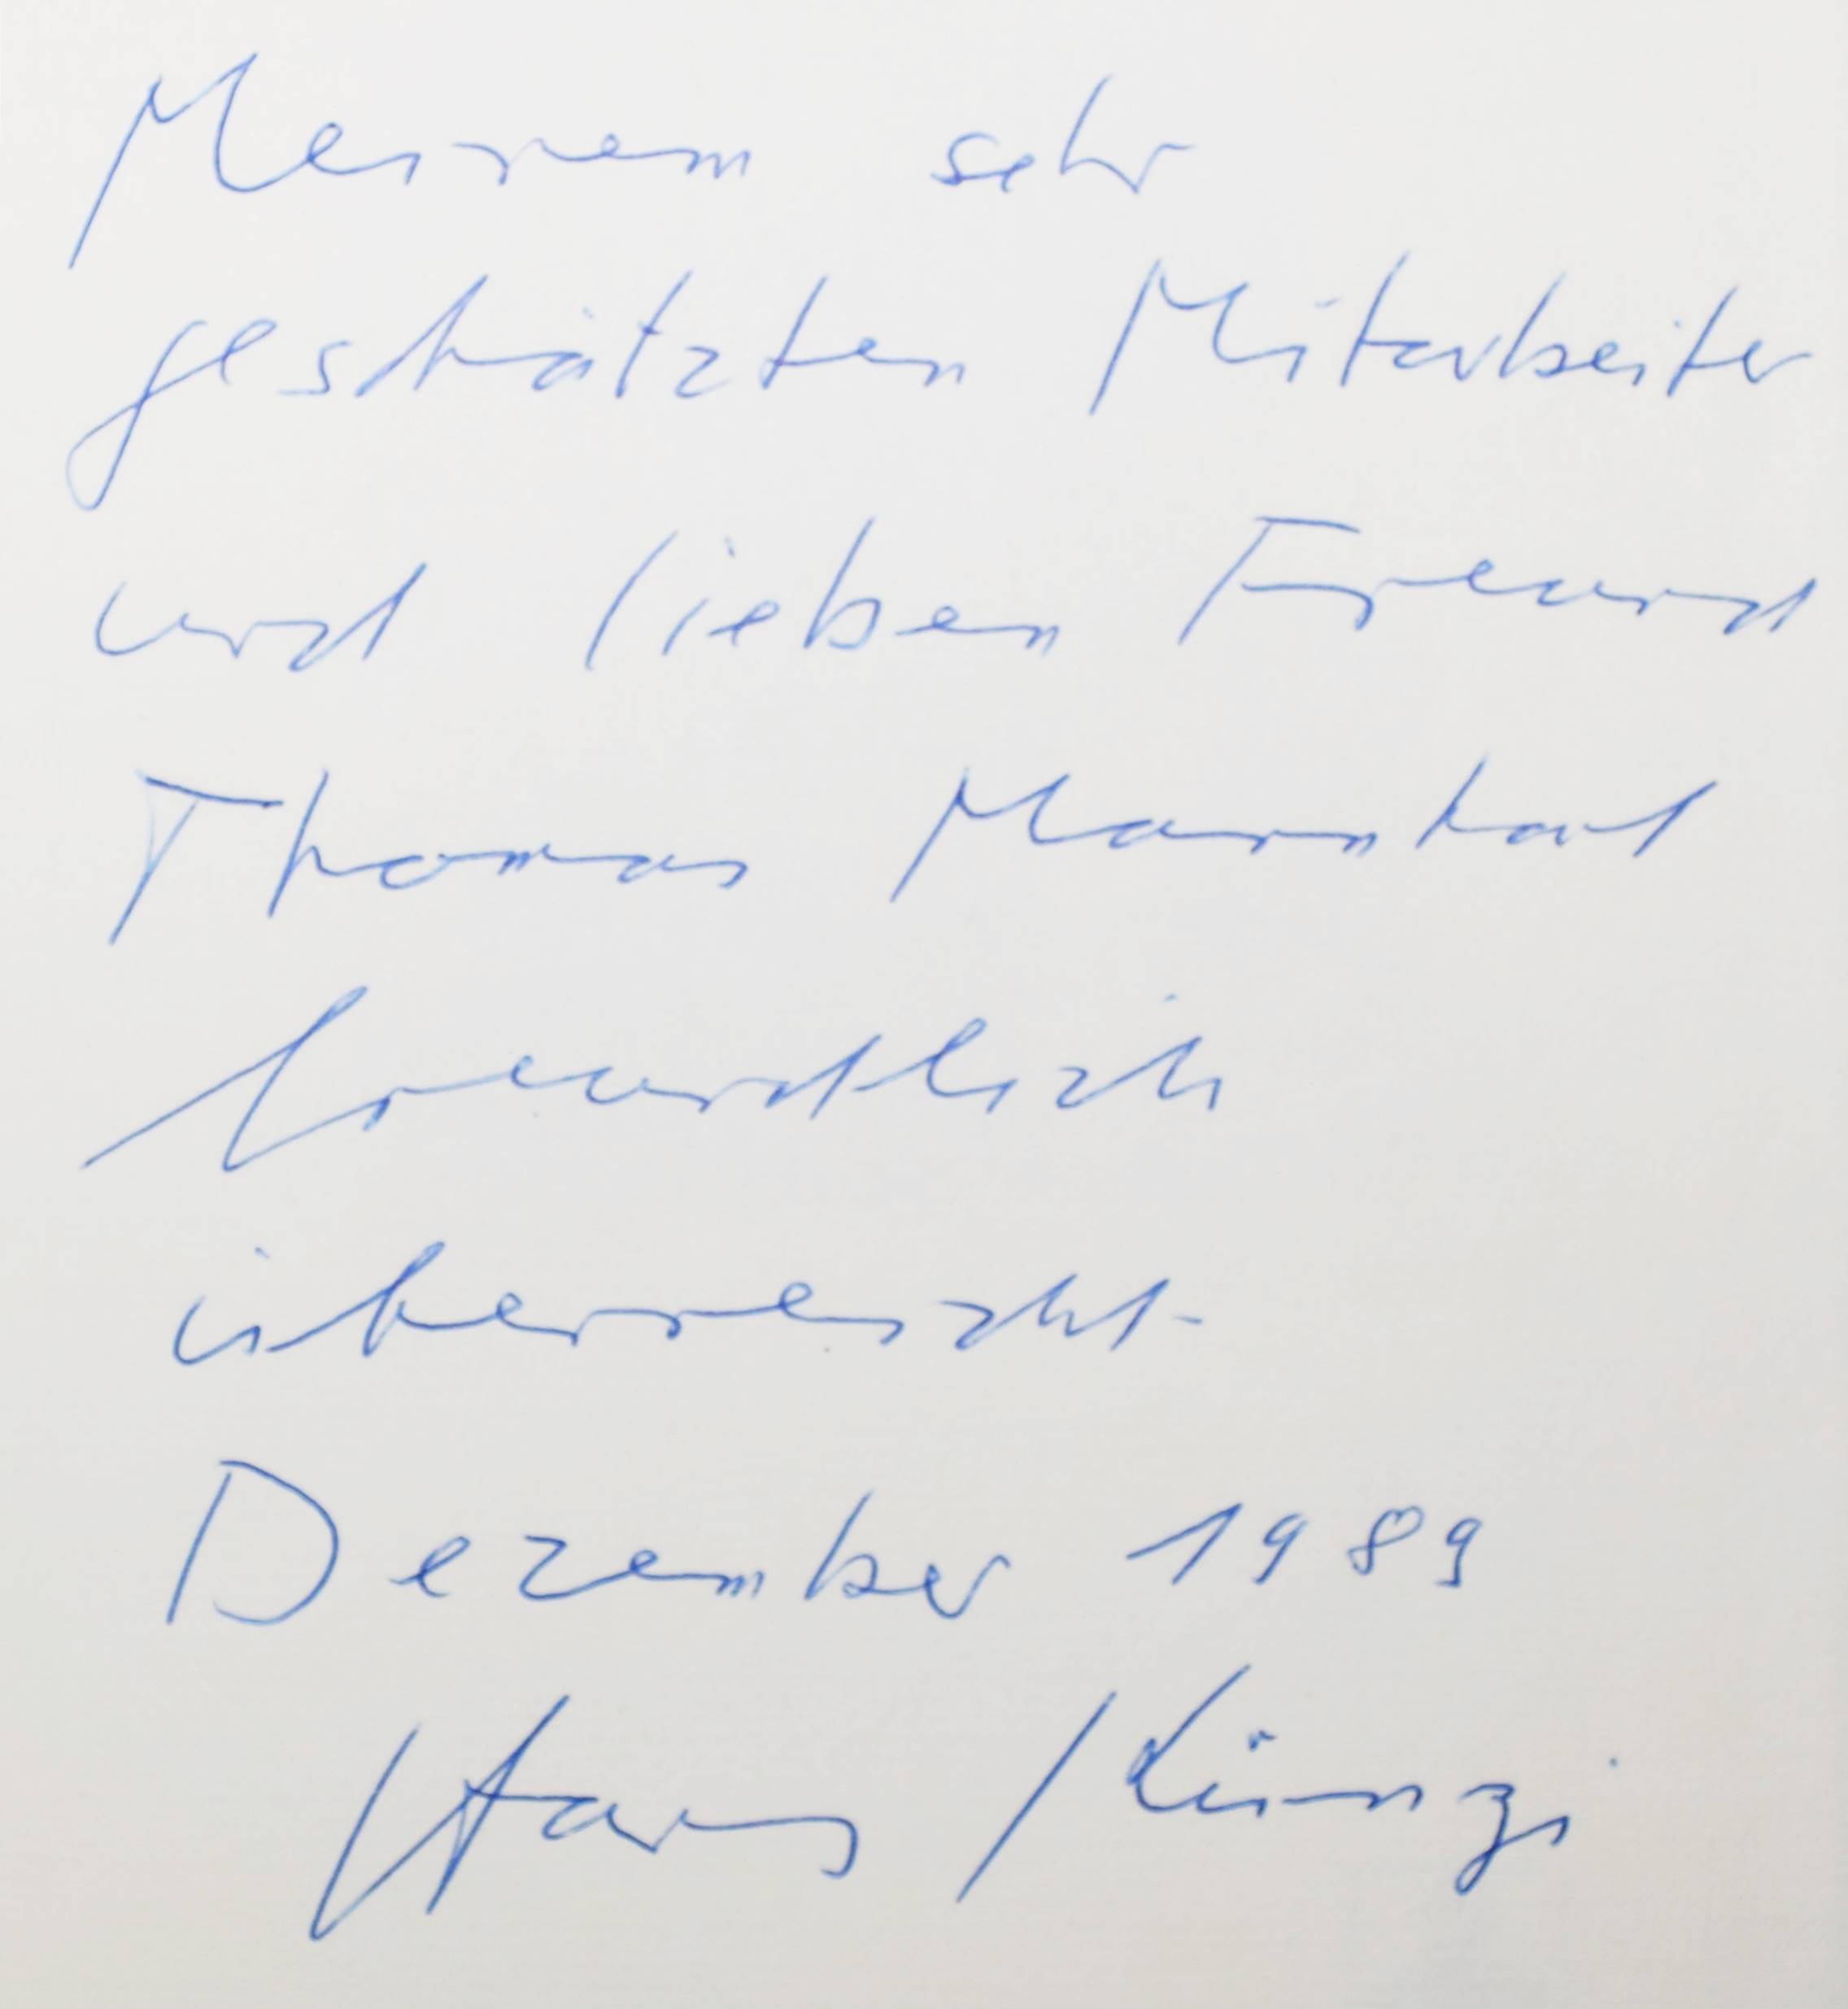 Meinem sehr
geschätzten Mitarbeiter
und lieben Freund
Thomas
freundlich
überreicht
Dezember 1989
Hans Künzi